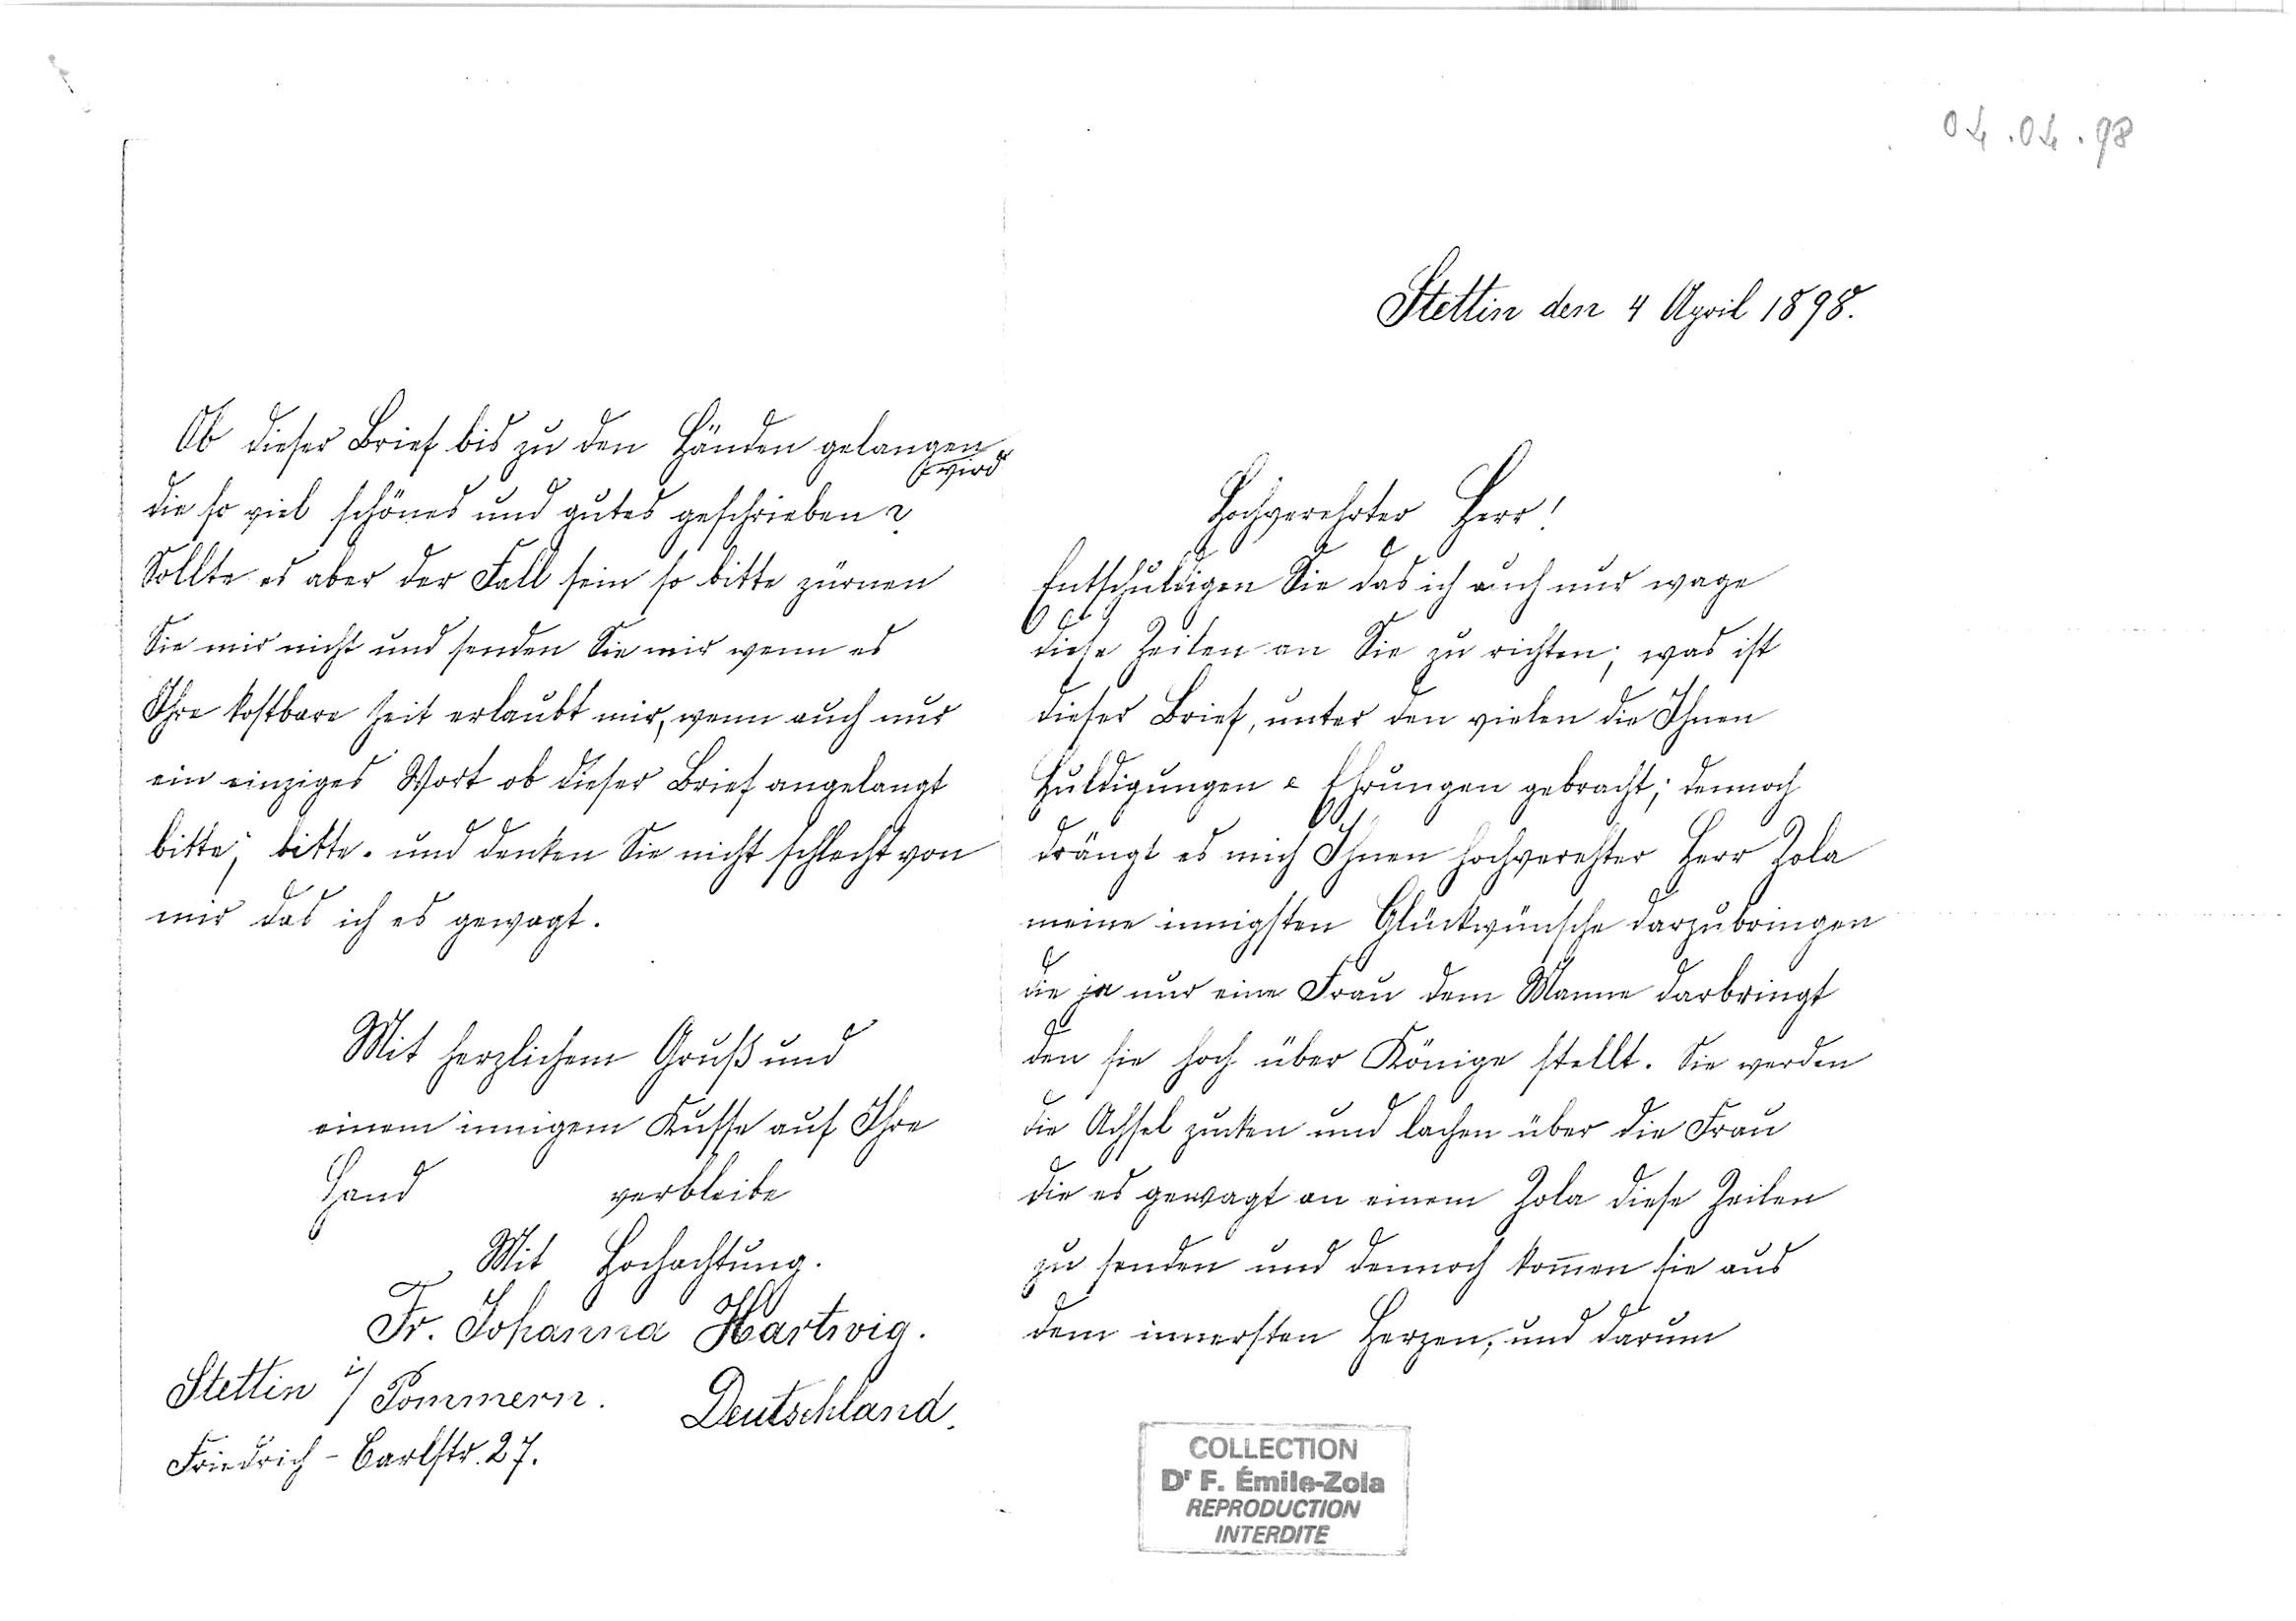 04.04.98
Stettin den 4 April 1898.
Hochverehrter Herr!
Entschuldigen Sie das ich auch nur wage
diese Zeilen an Sie zu richten; was ist
dieser Brief, unter den vielen die Ihnen
Huldigungen & Ehrungen gebracht; dennoch
drängt es mich Ihnen hochverehter Herr Zola
meine innigsten Glückwünsche darzubringen
die ja nur eine Frau dem Manne darbringt
den sie hoch über Könige stellt. Sie werden
die Achsel zucken und lachen über die Frau
die es gewagt an einem Zola diese Zeilen
zu senden und dennoch kom̅en sie aus
dem innersten Herzen, und darum
Ob dieser Brief bis zu den Händen gelangen
wird
die so viel schönes und gutes geschrieben?
Sollte es aber der Fall sein so bitte zürnen
Sie mir nicht und senden Sie mir wenn es
Ihre kostbare Zeit erlaubt mir, wenn auch nur
ein einziges Wort ob dieser Brief angelangt
bitte; bitte. und denken Sie nicht schlecht von
mir das ich es gewagt.
Mit herzlichem Gruß und
einem innigem Kusse auf Ihre
Hand verbleibe
Mit Hochachtung.
Fr. Johanna Hartwig.
Stettin i/ Pommern. Deutschland.
Friedrich-Carlstr. 27.
COLLECTION
Dr F. Émile-Zola
REPRODUCTION
INTERDITE